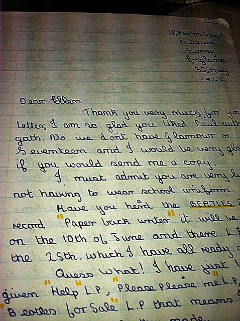 England
Dear Ellen
Thank you very much for your
letter, I am so glad you liked Paul
gath. No we dont have Glamour or
Seventeen and I would be very gl
if you would send me a copy.
I must admit you are very l
not having to wear school uniform.
Have you heard the BEATLES
record "Paper back writer" it will be
on the 10th of June and there L.P
the 25th. which I have all ready
Guess what! I have just
given "Help L.P, "Please Please me L.P,
Beatles for Sale" L.P that means
made.